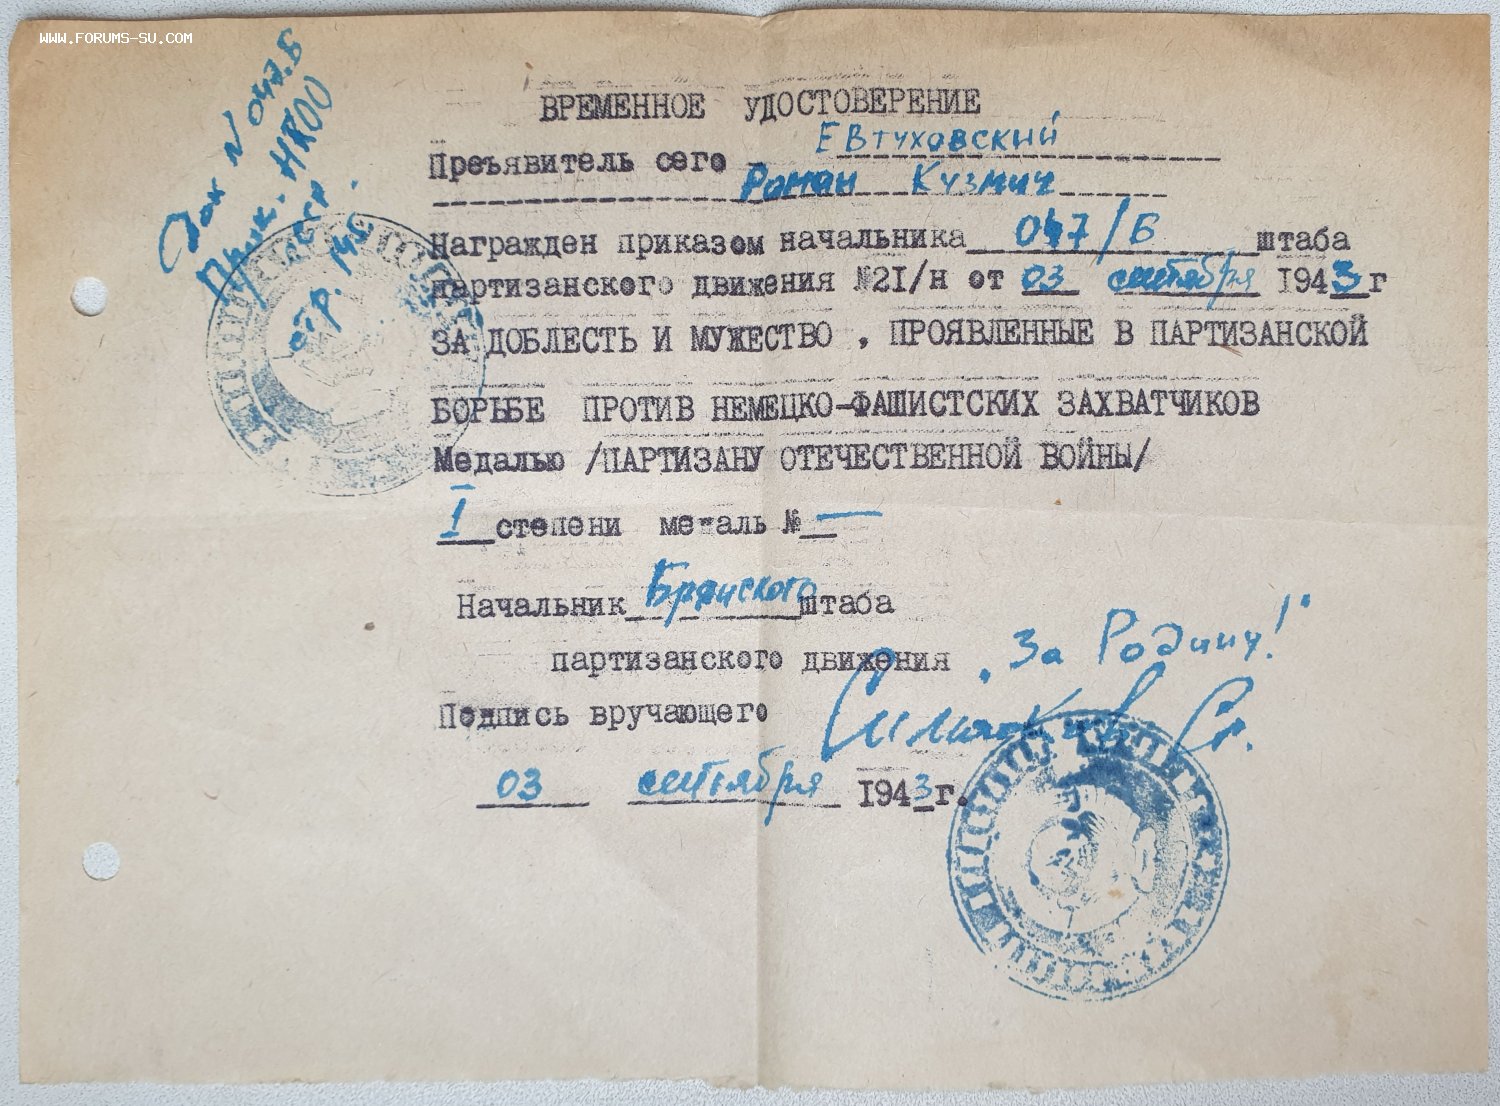 WWW.FORUMS-SU.COM
Док № 047.Б
ВРЕМЕННОЕ УДОСТОВЕРЕНИЕ
Преъявитель сего Евтуховский
Роман Кузмич
Награжден приказом начальника 047/Б штаба
партизанского движения №2I/н от 03 сентября 1943г
ЗА ДОБЛЕСТЬ И МУЖЕСТВО , ПРОЯВЛЕННЫЕ В ПАРТИЗАНСКОЙ
БОРЬБЕ ПРОТИВ НЕМЕЦКО-ФАШИСТСКИХ ЗАХВАТЧИКОВ
Медалью /ПАРТИЗАНУ ОТЕЧЕСТВЕННОЙ ВОЙНЫ/
I степени медаль № —
Начальник Брянского штаба
партизанского движения
„За Родину!"
Подпись вручающего
03 сентября 1943г.